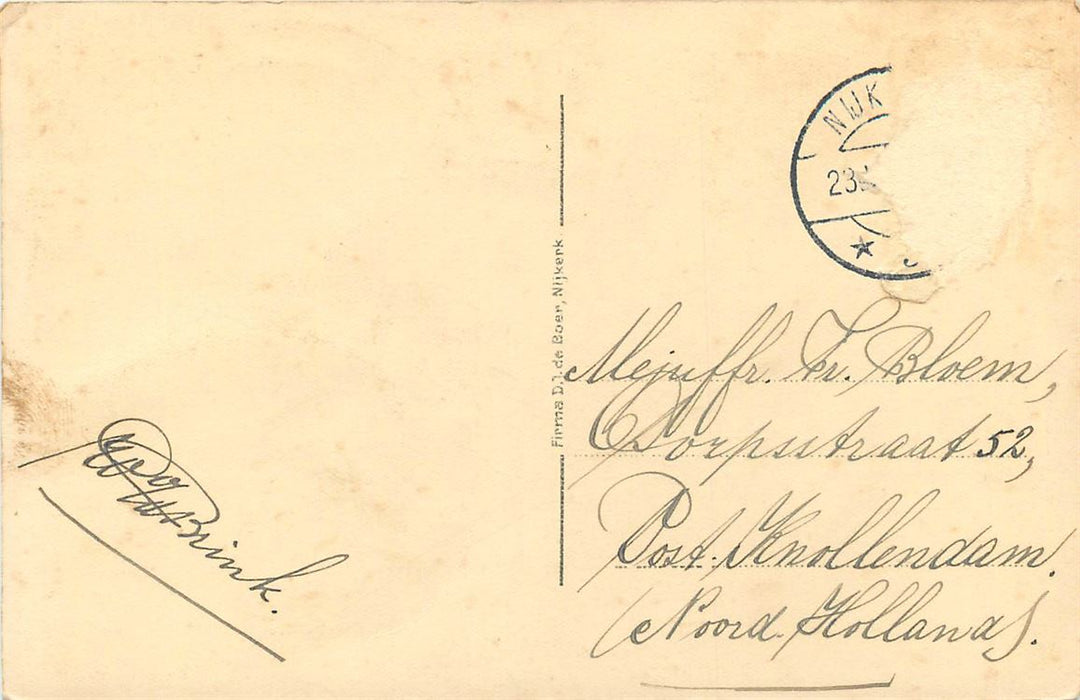 NIJK
23
Firma D.J. de Boer, Nijkerk
Mejuffr. Tr. Bloem,
Dorpsstraat 52,
Post. Knollendam.
(Noord. Holland).
Brink.